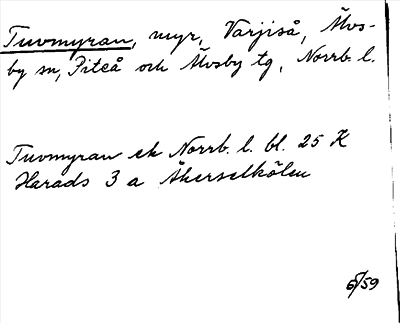 Tuvmyran, myr, Varjiså, Älvs-
by sn, Piteå och Älvsby tg, Norrb. l.
Tuvmyran ek Norrb. l. bl. 25 K
Harads 3 a Åkerselkölen
6/59